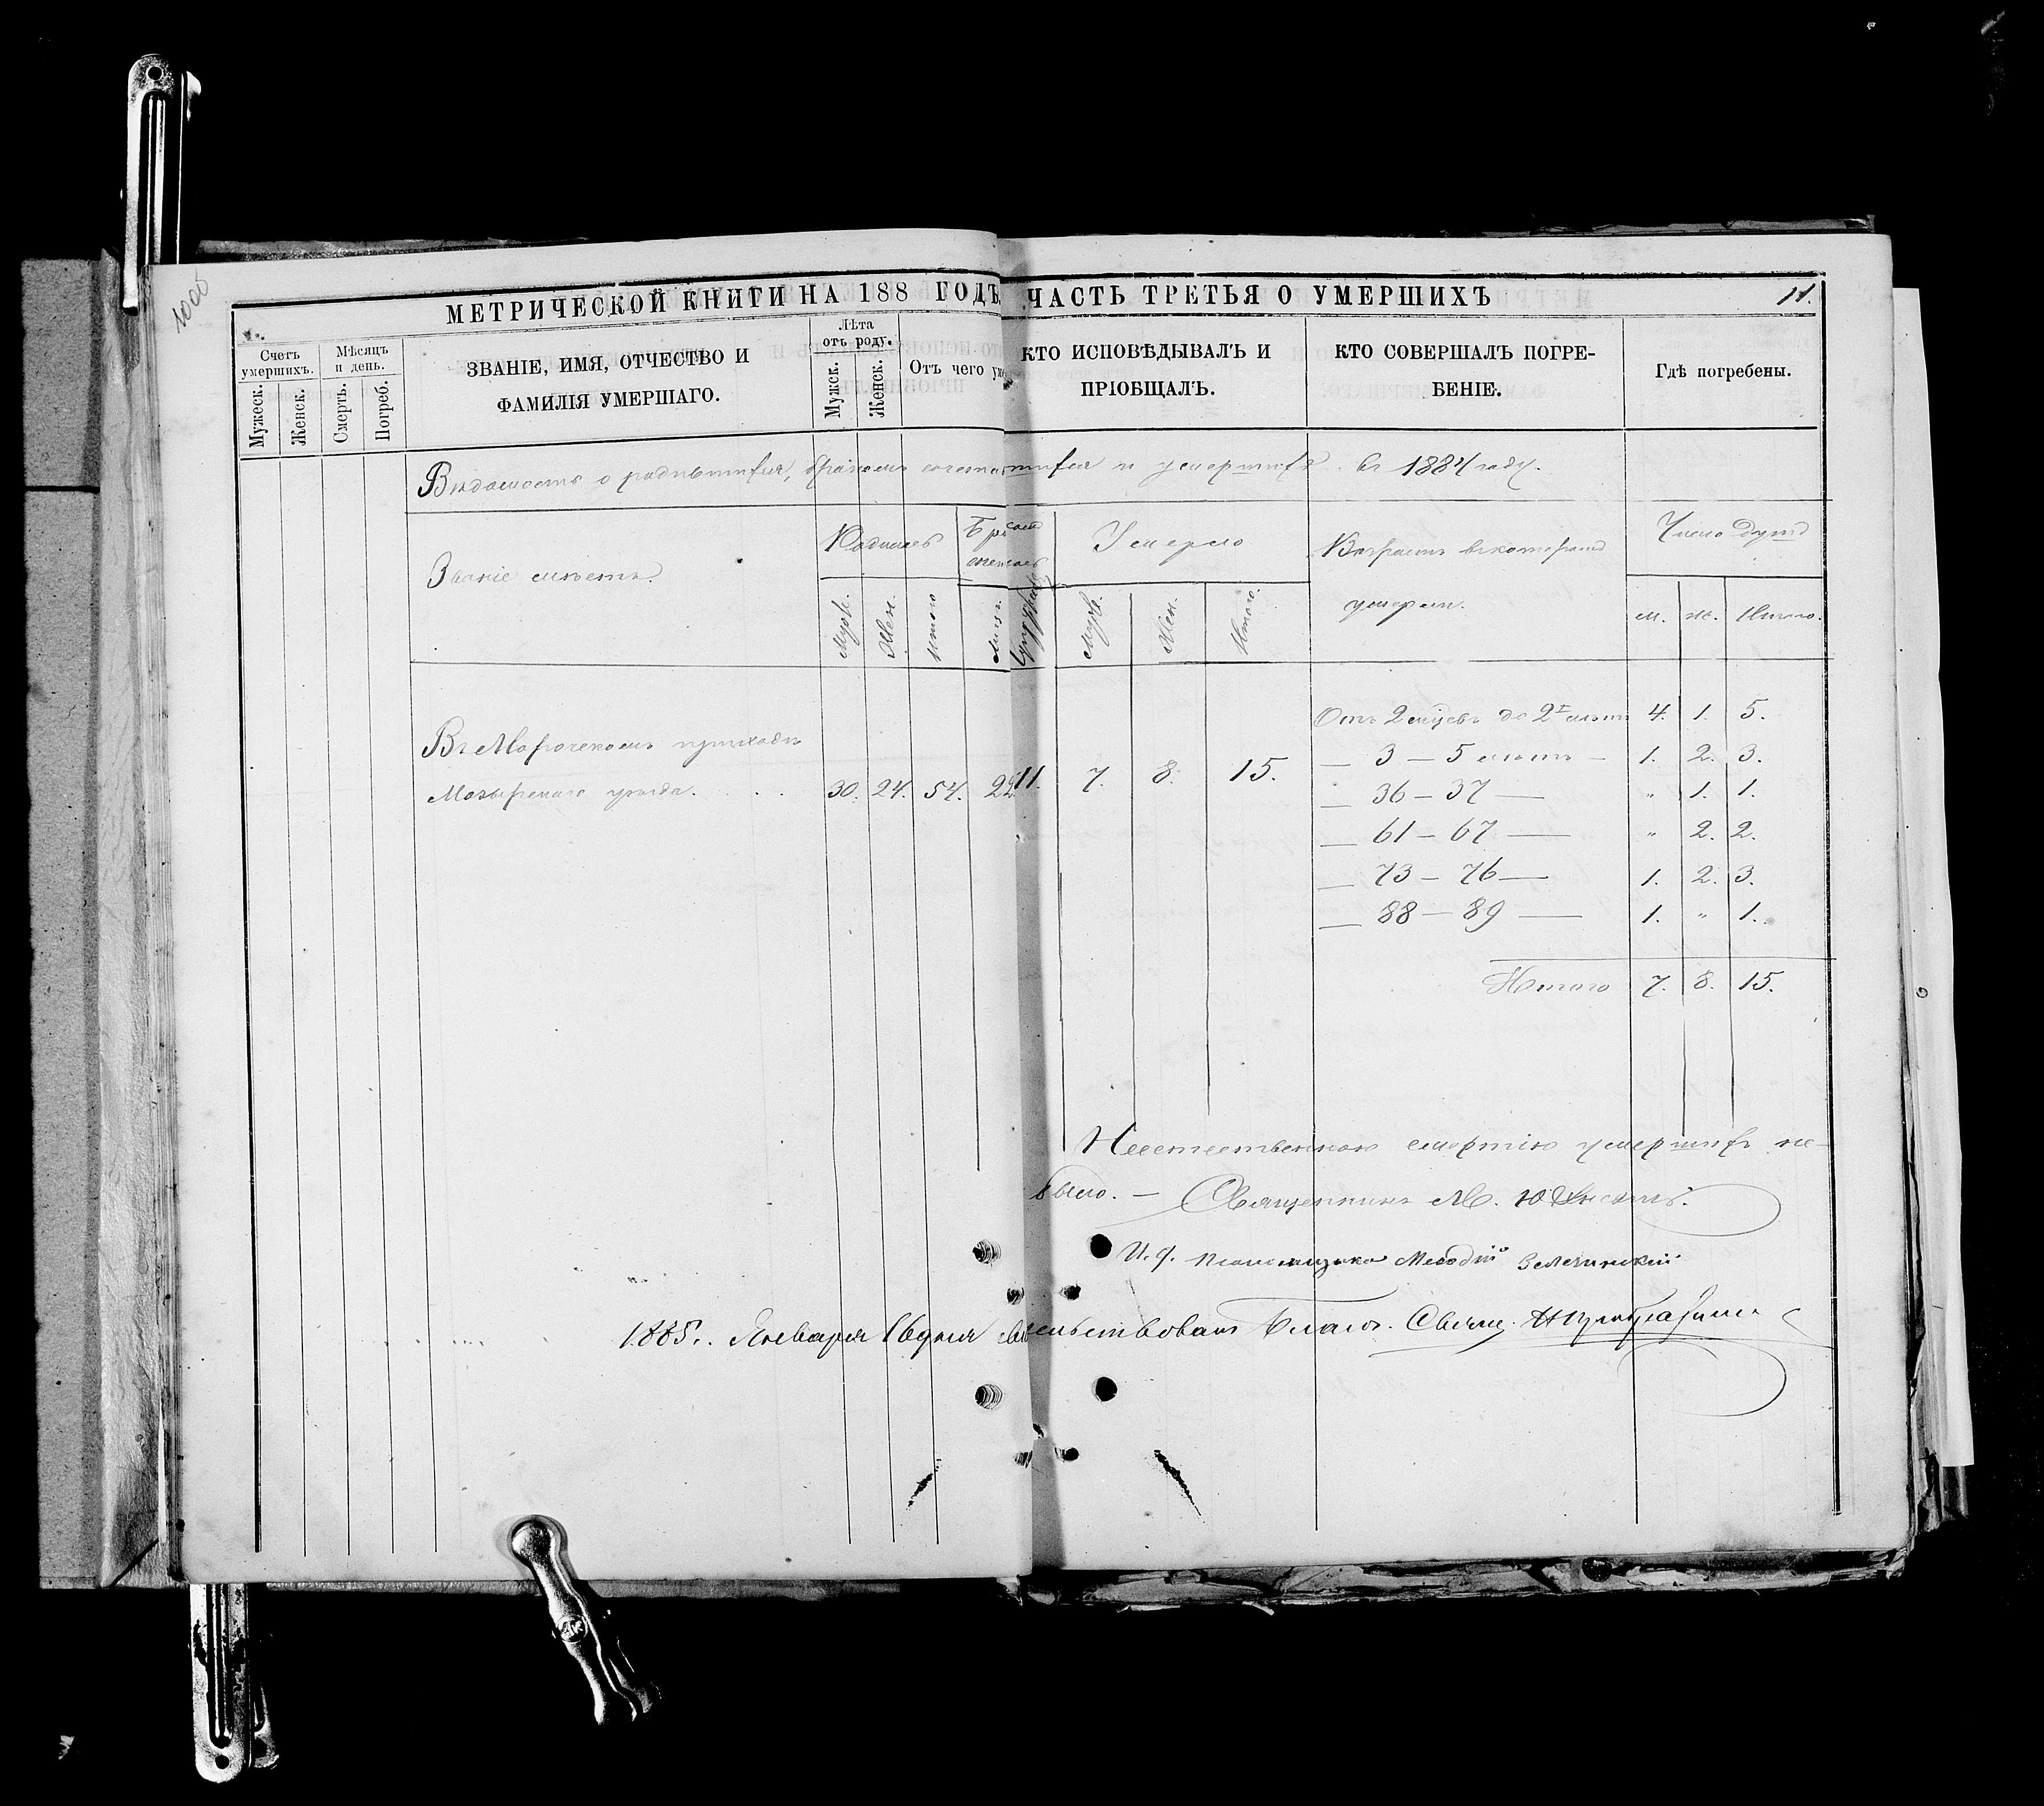 1006
МЕТРИЧЕСКОЙ КНИГИ НА 188 ГОДЪ, ЧАСТЬ ТРЕТЬЯ О УМЕРШИХЪ
11.
Счетъ умершихъ.
Мужеск.
Женск.
Мѣсяцъ и день.
Смерть.
Погреб.
ЗВАНІЕ, ИМЯ, ОТЧЕСТВО И
ФАМИЛІЯ УМЕРШАГО.
Лѣта отъ роду.
Мужск.
Женск.
Отъ чего
КТО ИСПОВѢДЫВАЛЪ И
ПРІОБЩАЛЪ.
КТО СОВЕРШАЛЪ ПОГРЕ-
БЕНІЕ.
Гдѣ погребены.
Вѣдомость о родившихся, бракомъ сочетавшихся и умершихъ въ 1884 году.
Званіе мѣстъ.
Родилось
Муж.
Жен.
Итого
Умерло
Муж.
Жен.
Итого.
Возрастъ въ которомъ
умерли.
Число душъ
м. ж. Итого.
Отъ 2 мцевъ до 2х лѣтъ 4. 1. 5.
Въ Морочскомъ приходѣ
— 3 — 5 лѣтъ — 1. 2. 3.
Мозырскаго уѣзда. . . . 30. 24. 54. 22. 11. 7. 8. 15.
— 36 — 37 — " 1. 1.
— 61 — 67 — " 2. 2.
— 73 — 76 — 1. 2. 3.
— 88 — 89 — 1. " 1.
Итого 7. 8. 15.
Неестественною смертію умершихъ не-
было. — Священникъ М.
И. д. псаломщика Меѳодій
1885 г. Января 16 дня свидѣтельствовалъ Благоч. Свящ.